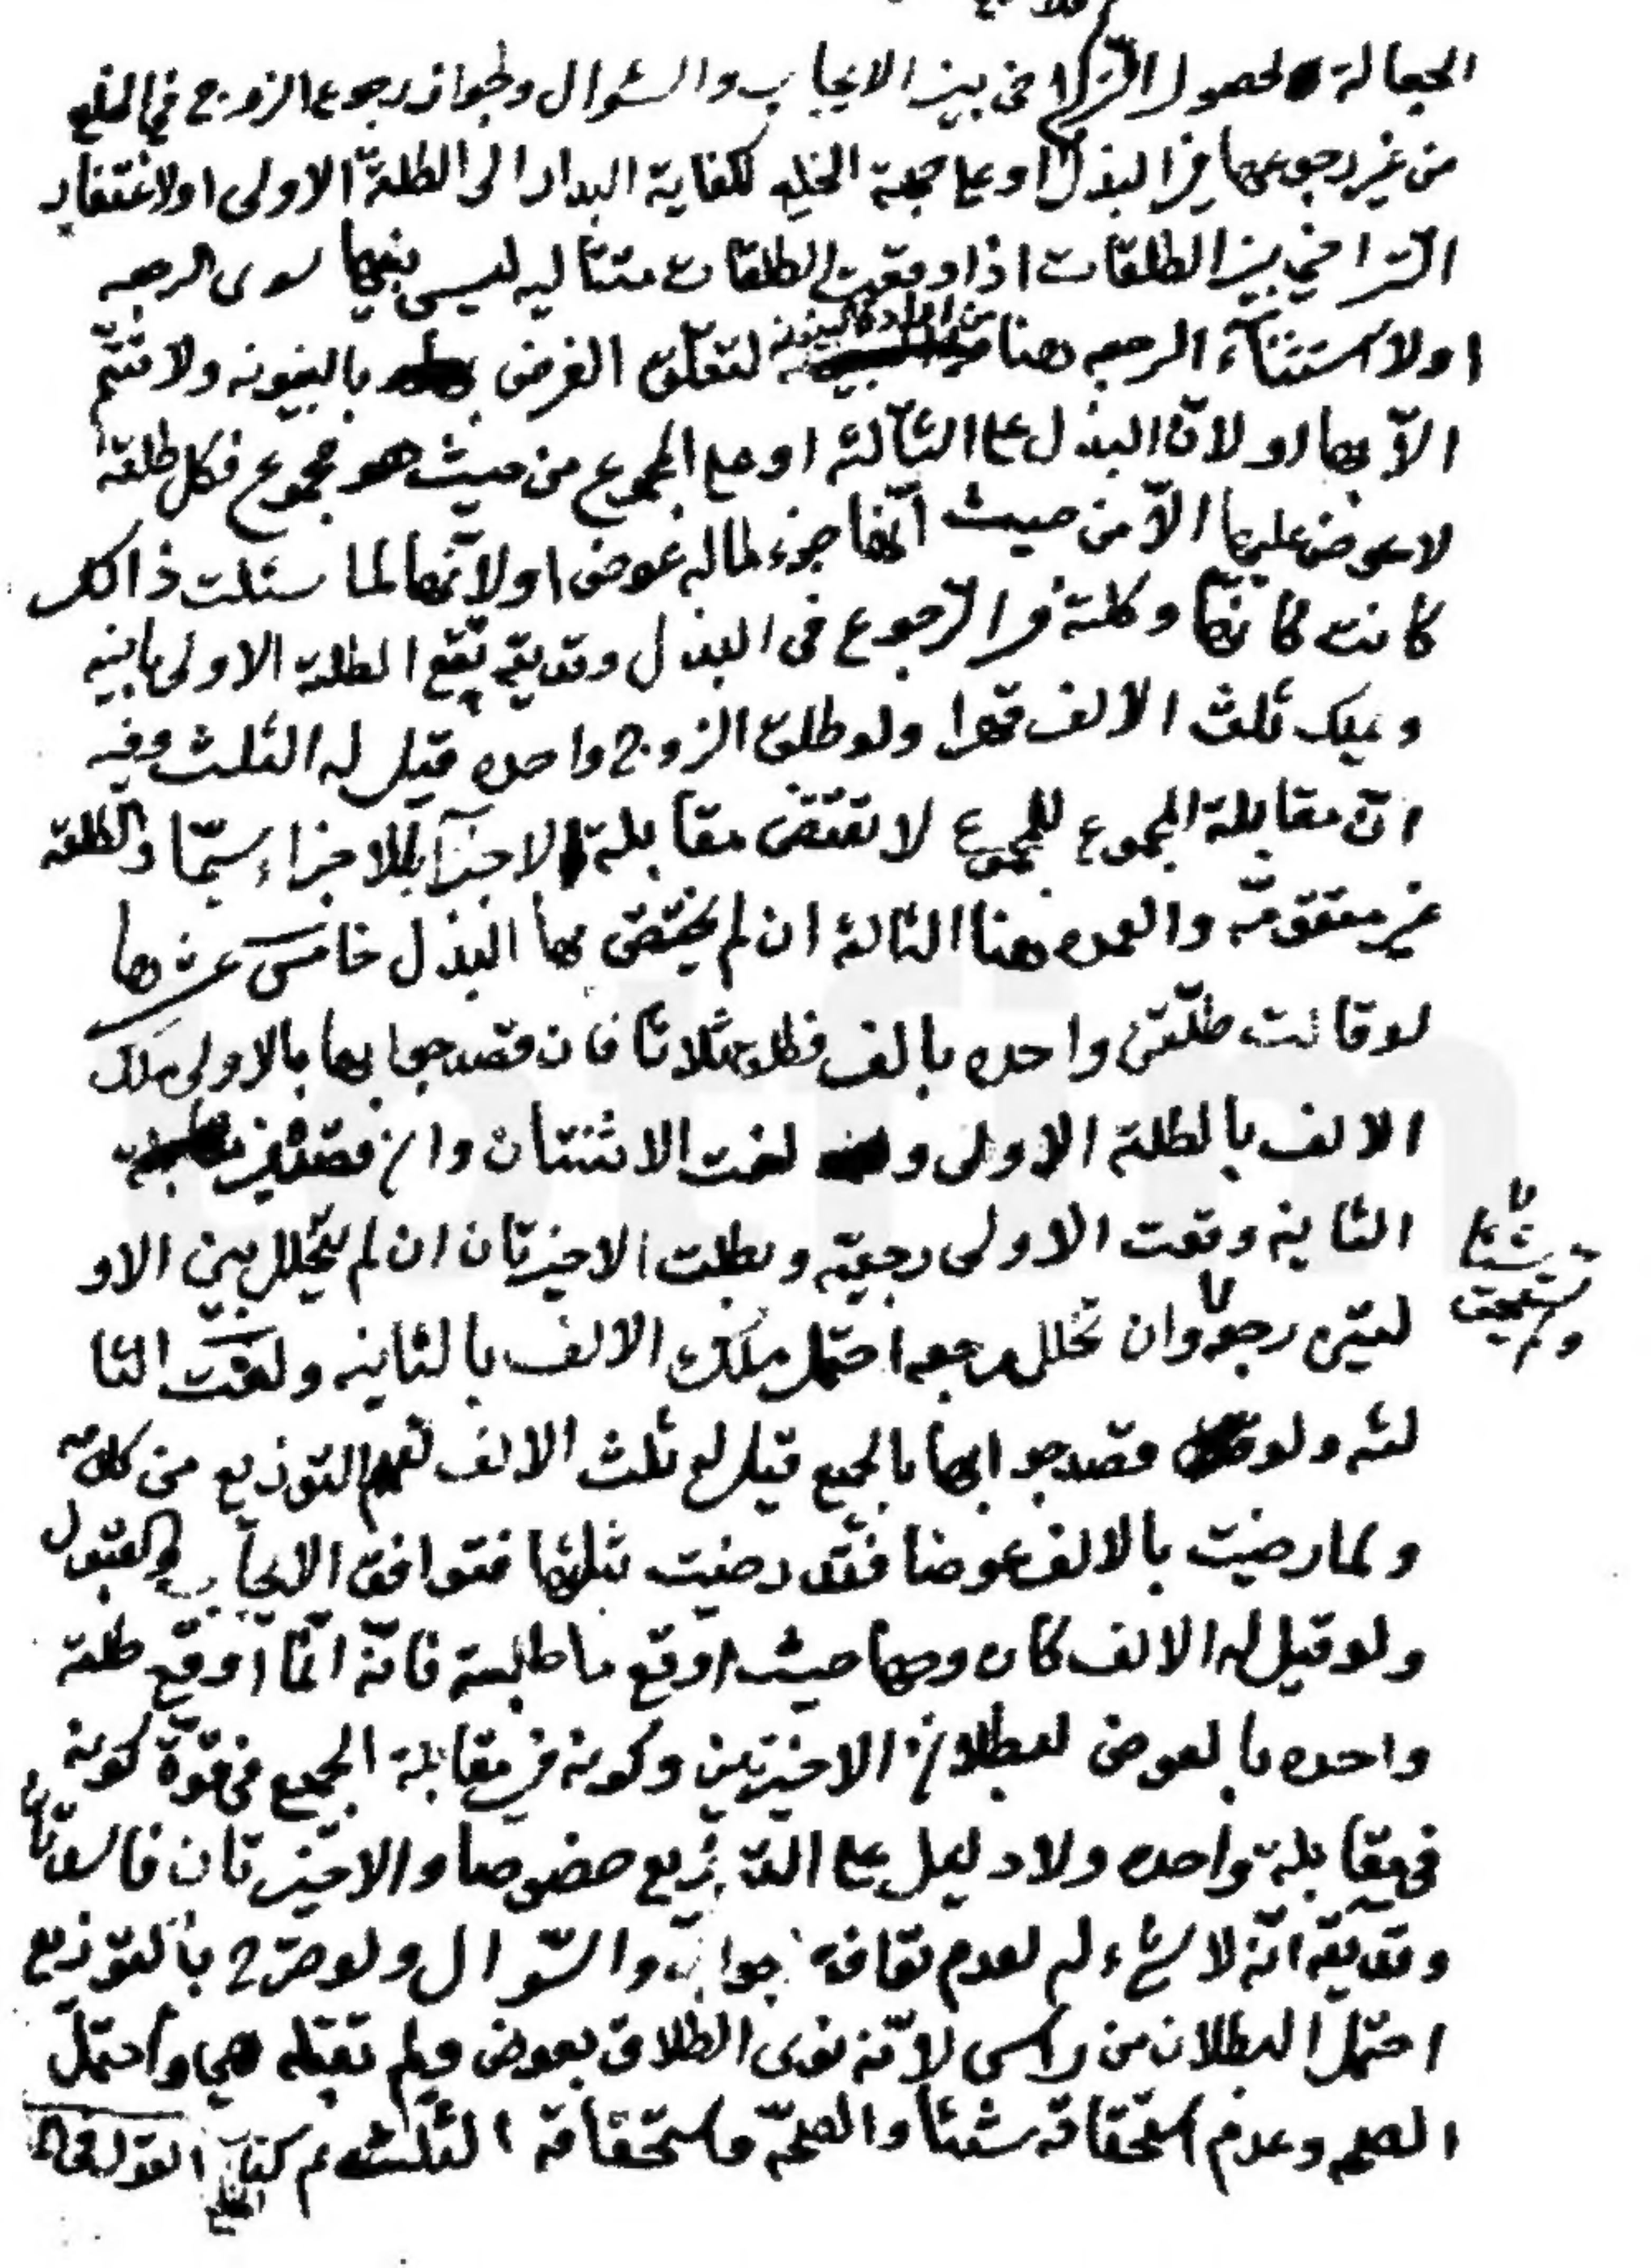 الجعالة لحصول التراخى بين الايجاب والسئوال ولجواز رجوع الزوج في الخلع
من غير رجوعها في البذل او على جهة الخلع لكفاية البدار الى الطلقة الاولى او لاغتفار
التراخي بين الطلقات اذا وقعت الطلقات متتاليه ليس بينها سوى الرجعه
او لاستثناء الرجعه هنا لتعلّق الغرض بالبينونه ولا تتمّ
الاّ بها او لانّ البذل على الثالثه او على المجموع من حيث هو مجموع فكل طلقة
لا عوض عليها الاّ من حيث انّها جزء لما له عوض او لانّها لما سئلت ذالك
كانت كانّها وكلته في الرّجوع في البذل وقد يقع تقع الطلقة الاولى باينه
ويملك ثلث الالف قهرا ولو طلق الزوج واحده قيل له الثلث وفيه
انّ مقابلة المجموع للمجموع لا تقتضى مقابلة الاجزآء للاجزاء سيّما والطلقة
غير متقوّمه والعمده هنا الثالثة ان لم يختصّ بها البذل خامس عشرها
لو قالت طلّقنى واحده بالف فطلق ثلاثا فان قصد جوابها بالاولى ملك
الالف بالطلقة الاولى و لغت الاثنتان وان قصد
الثانيه وقعت الاولى رجعيّه وبطلت الاخيرتان ان لم يتخلل بين الاو
لتين رجوع وان تخلل رجعه احتمل ملك الالف بالثانيه ولغت الثا
لثه ولو قصد جوابها بالجميع قيل له ثلث الالف التوزيع من كلامه
ولما رضيت بالالف عوضا فقد رضيت بثلثها فتوافق الايجاب والقبول
ولو قيل له الالف كان وجها حيث اوقع ما طلبته فانّه انّما اوقع طلقة
واحده بالعوض لبطلان الاخيرتين وكونه في مقابلة الجميع في قوّة كونه
في مقابلة واحده ولا دليل على التوزيع خصوصا والاخيرتان فاسدتان
وقد يقال انّه لا شيء له لعدم توافق جواب والسّوال ولو صرّح بالتوزيع
احتمل البطلان من راس لانّه نوى الطلاق بعوض ولم تقبله هي واحتمل
الصحه وعدم استحقاقه شيئا والصحّه واستحقاقه الثلث تم كتاب الخلع القول في